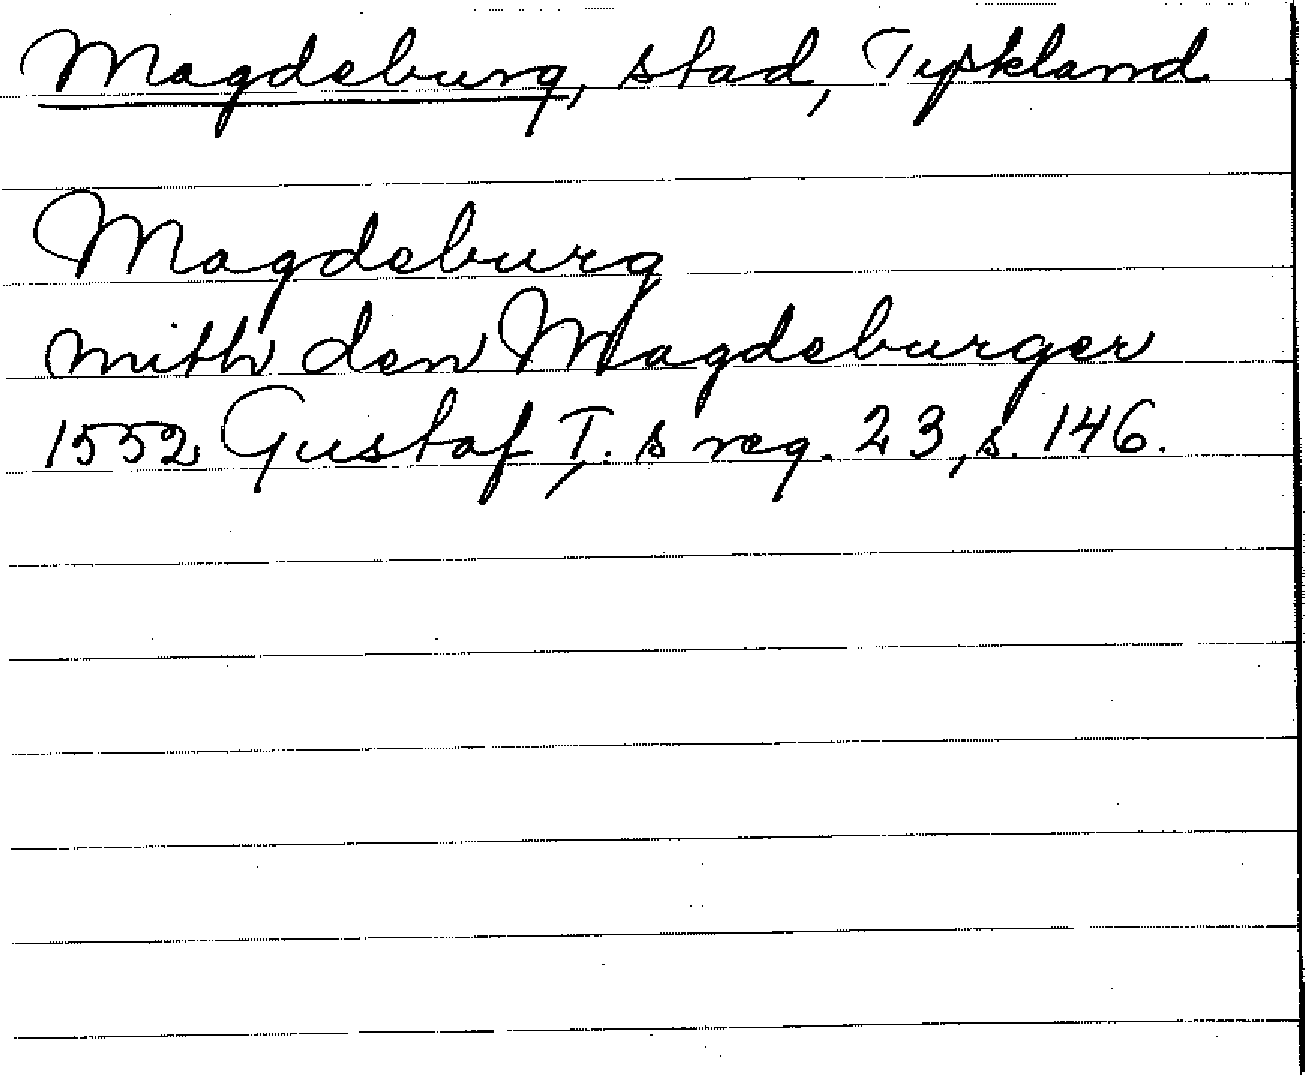 Magdeburg, stad, Tyskland
Magdeburg
mith den Magdeburger
1552 Gustaf I. s reg. 23, s. 146.